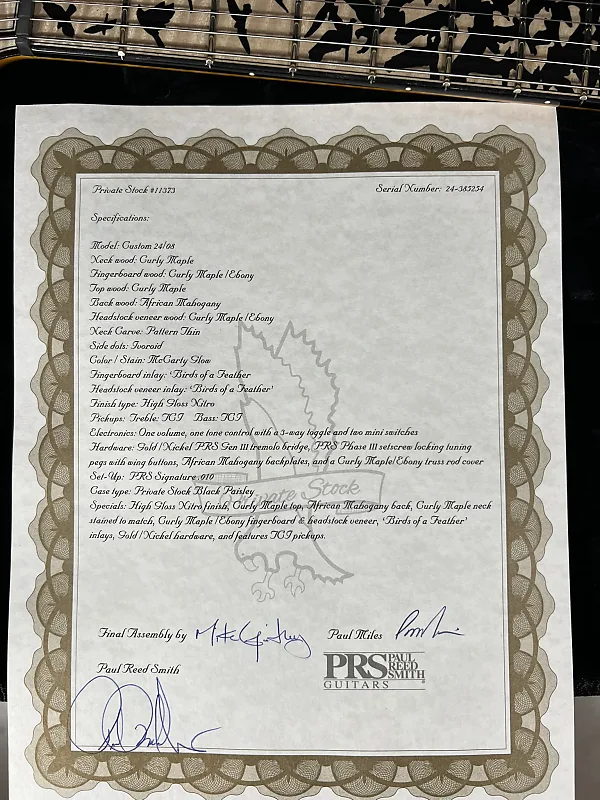 Private Stock #11373
Serial Number: 24-385254
Specifications:
Model: Custom 24/08
Neck wood: Curly Maple
Fingerboard wood: Curly Maple /Ebony
Top wood: Curly Maple
Back wood: African Mahogany
Headstock veneer wood: Curly Maple /Ebony
Neck Carve: Pattern Thin
Side dots: Ivoroid
Color / Stain: McCarty Glow
Fingerboard inlay: 'Birds of a Feather
Headstock veneer inlay: 'Birds of a Feather'
Finish type: High Gloss Nitro
Pickups: Treble: TCI Bass: TCI
Electronics: One volume, one tone control with a 3-way toggle and two mini switches
Hardware: Gold / Nickel PRS Gen III tremolo bridge, PRS Phase III setscrew locking tuning
pegs with wing buttons, African Mahogany backplates, and a Curly Maple/Ebony truss rod cover
Set-Up: PRS Signature .010
Case type: Private Stock Black Paisley
Private Stock
Specials: High Gloss Nitro finish, Curly Maple top, African Mahogany back, Curly Maple neck
stained to match, Curly Maple /Ebony fingerboard & headstock veneer, 'Birds of a Feather'
inlays, Gold / Nickel hardware, and features TCI pickups.
Final Assembly by
Paul Miles
Paul Reed Smith
PRS PAUL REED SMITH
GUITARS